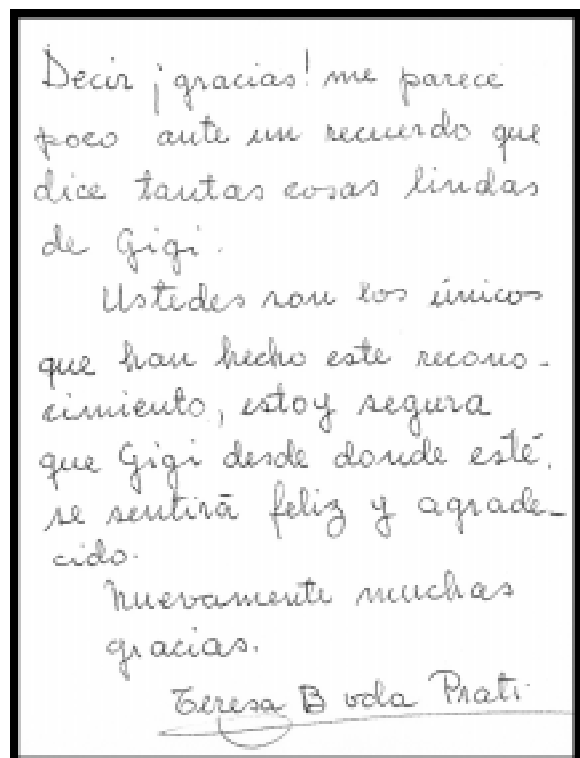 Decir ¡gracias! me parece
poco ante un recuerdo que
dice tantas cosas lindas
de Gigi.
Ustedes son los únicos
que han hecho este recono-
cimiento, estoy segura
que Gigi desde donde esté,
se sentirá feliz y agrade-
cido.
Nuevamente muchas
gracias.
Teresa B vda Prati